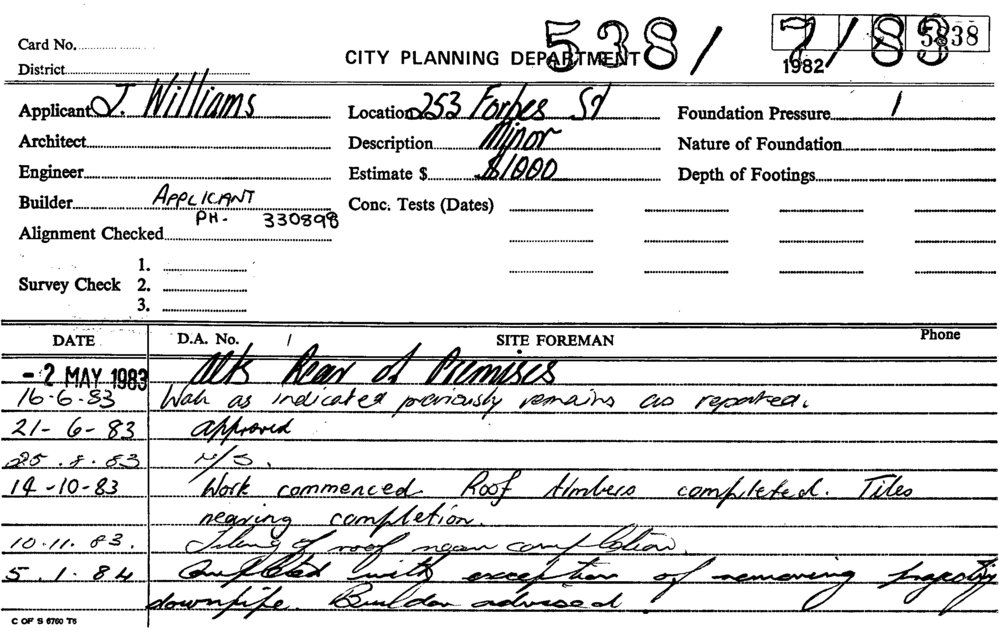 538/ 7/83
5838
Card No.
CITY PLANNING DEPARTMENT
1982
District
Applicant J. Williams
Location 253 Forbes St
Foundation Pressure
Architect
Description Minor
Nature of Foundation
Engineer
Estimate $ $1000
Depth of Footings
Builder APPLICANT
PH. 330898
Conc. Tests (Dates)
Alignment Checked
Survey Check
1.
2.
3.
DATE
D.A. No. /
SITE FOREMAN
Phone
-2 MAY 1983 Alts Rear of Premises
16-6-83 as indicated previously remains as reported.
21-6-83 approved
25.8.83 N/S.
14-10-83 Work commenced. Roof timbers completed. Tiles
nearing completion.
10.11.83. Tiling of roof near completion.
5.1.84 Completed with exception of removing
downpipe. Builder advised.
C OF S 6760 T6